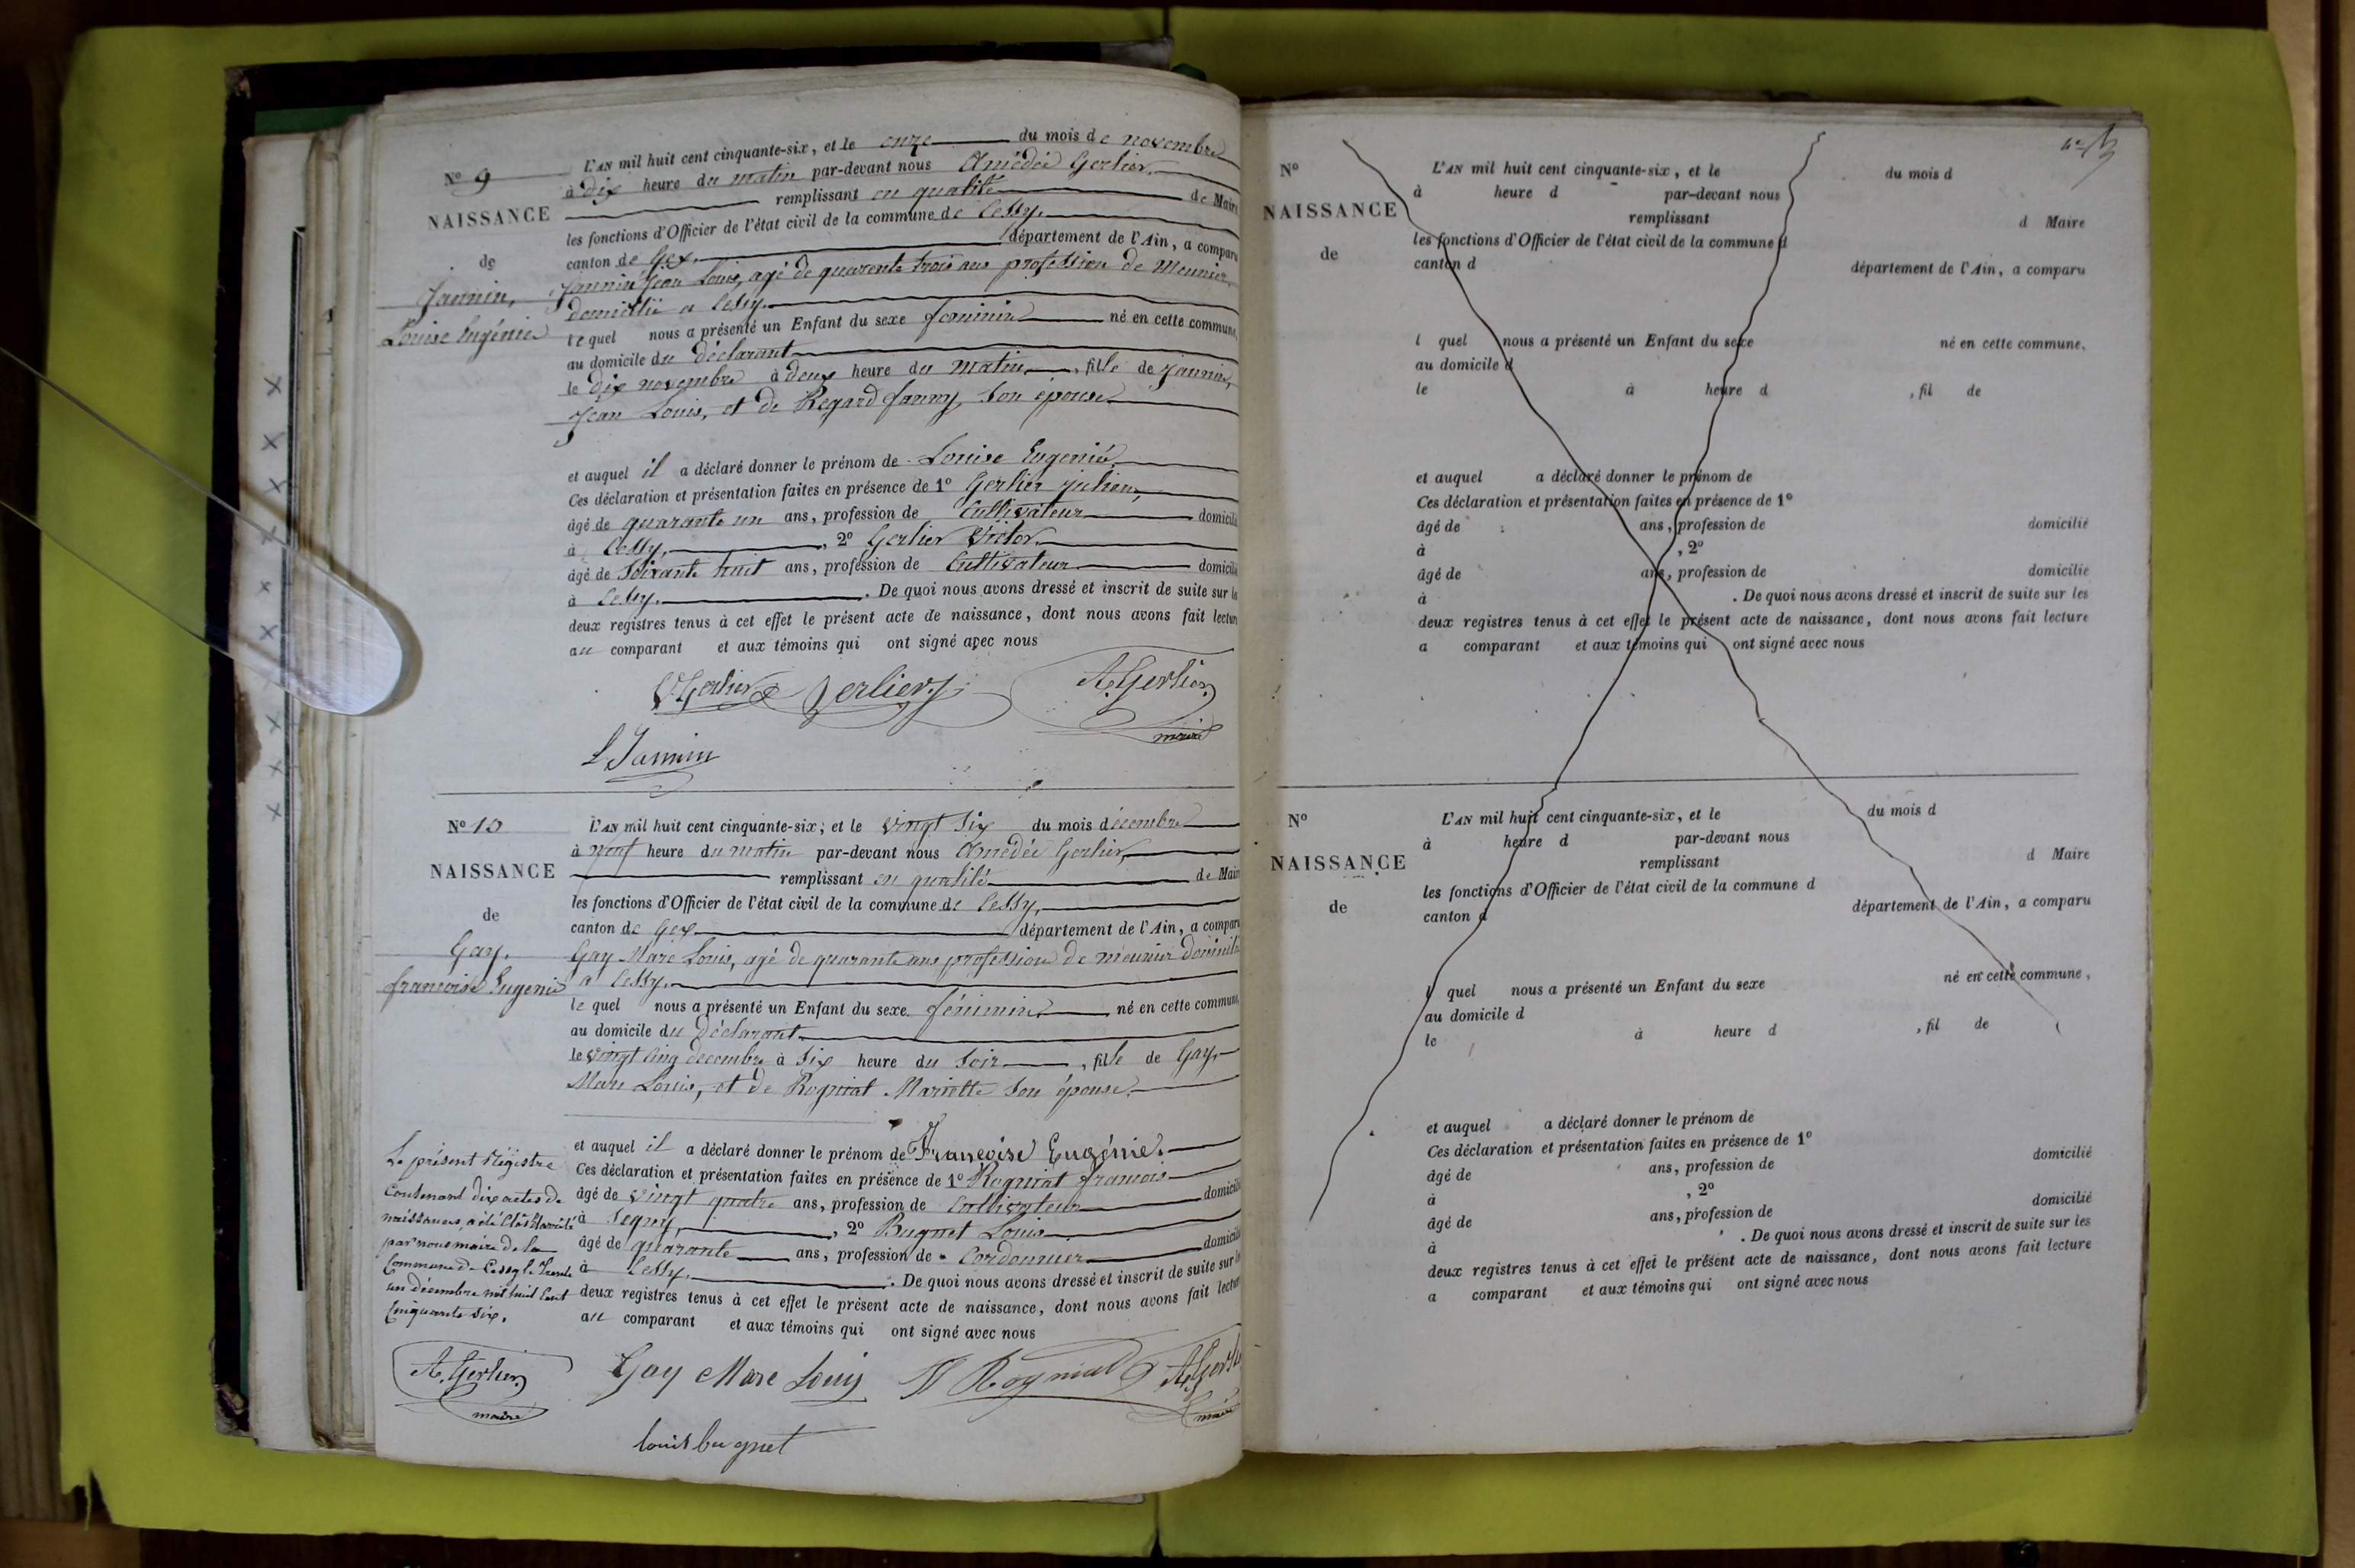 Nº 9
NAISSANCE
de
Jannin,
Louise Eugénie
L'AN mil huit cent cinquante-six, et le onze du mois de novembre
à dix heure du matin par-devant nous Amédée Gerlier,
remplissant en qualité de Maire
les fonctions d'Officier de l'état civil de la commune de Cessy,
canton de Gex, département de l'Ain, a comparu
Jannin Jean Louis, agé de quarente trois ans profession de Meunier
domicilié a Cessy.
lequel nous a présenté un Enfant du sexe feminin né en cette commune,
au domicile du déclarant
le dix novembre à deux heure du matin, fille de Jannin,
Jean Louis, et de Regard fanny, son épouse
et auquel il a déclaré donner le prénom de Louise Eugenie,
Ces déclaration et présentation faites en présence de 1º Gerlier julien,
âgé de quarante un ans, profession de Cultivateur domicilié
à Cessy, , 2º Gerlier Victor,
âgé de Soixante huit ans, profession de Cultivateur domicilié
à Cessy. . De quoi nous avons dressé et inscrit de suite sur les
deux registres tenus à cet effet le présent acte de naissance, dont nous avons fait lecture
au comparant et aux témoins qui ont signé avec nous
V Gerlier Gerlier J A. Gerlier
maire
L Jannin
Nº 10
NAISSANCE
de
Gay,
francoise Eugenie
L'AN mil huit cent cinquante-six; et le vingt Six du mois décembre
à neuf heure du matin par-devant nous Amédée Gerlier,
remplissant en qualité de Maire
les fonctions d'Officier de l'état civil de la commune de Cessy,
canton de Gex département de l'Ain, a comparu
Gay Marc Louis, agé de quarante ans profession de meunier domicilié
a Cessy.
le quel nous a présenté un Enfant du sexe féminin né en cette commune,
au domicile du déclarant
le vingt cinq decembre à Six heure du Soir , fille de Gay,
Marc Louis, et de Rogniat Mariette son épouse.
et auquel il a déclaré donner le prénom de Francoise Eugénie.
Ces déclaration et présentation faites en présence de 1º Rogniat francois
âgé de vingt quatre ans, profession de Cultivateur domicilié
à Segny, , 2º Bugnet Louis
âgé de quarante ans, profession de Cordonnier domicilié
à Cessy. . De quoi nous avons dressé et inscrit de suite sur les
deux registres tenus à cet effet le présent acte de naissance, dont nous avons fait lecture
au comparant et aux témoins qui ont signé avec nous
Le présent Régistre
Contenant dix actes de
naissances, a été Clos & arrêté
par nous maire de la
Commune de Cessy le Trente
un décembre mil huit Cent
Cinquante six.
A. Gerlier
maire
Gay Marc Louis F Rogniat A. Gerlier
maire
louis bugnet
Nº
NAISSANCE
de
L'AN mil huit cent cinquante-six, et le du mois d
à heure d par-devant nous
remplissant d Maire
les fonctions d'Officier de l'état civil de la commune d
canton d département de l'Ain, a comparu
l quel nous a présenté un Enfant du sexe né en cette commune,
au domicile d
le à heure d , fil de
et auquel a déclaré donner le prénom de
Ces déclaration et présentation faites en présence de 1º
âgé de ans, profession de domicilié
à , 2º
âgé de ans, profession de domicilié
à . De quoi nous avons dressé et inscrit de suite sur les
deux registres tenus à cet effet le présent acte de naissance, dont nous avons fait lecture
a comparant et aux témoins qui ont signé avec nous
Nº
NAISSANCE
de
L'AN mil huit cent cinquante-six, et le du mois d
à heure d par-devant nous
remplissant d Maire
les fonctions d'Officier de l'état civil de la commune d
canton d département de l'Ain, a comparu
l quel nous a présenté un Enfant du sexe né en cette commune,
au domicile d
le à heure d , fil de
et auquel a déclaré donner le prénom de
Ces déclaration et présentation faites en présence de 1º
âgé de ans, profession de domicilié
à , 2º
âgé de ans, profession de domicilié
à . De quoi nous avons dressé et inscrit de suite sur les
deux registres tenus à cet effet le présent acte de naissance, dont nous avons fait lecture
a comparant et aux témoins qui ont signé avec nous